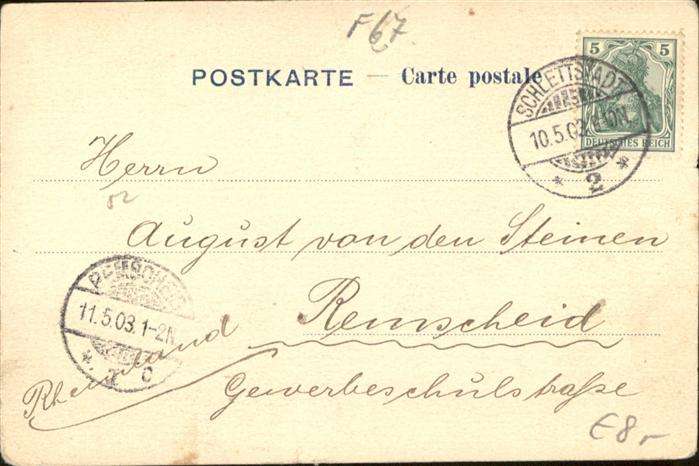 F67
POSTKARTE — Carte postale
5 5
DEUTSCHES REICH
SCHLETTSTADT
10.5.03.
* 2 *
Herrn
52
August von den Steinen
Remscheid
Rheinland
Gewerbeschulstraße
REMSCHEID
11.5.03.1-2N.
* c
€8,-